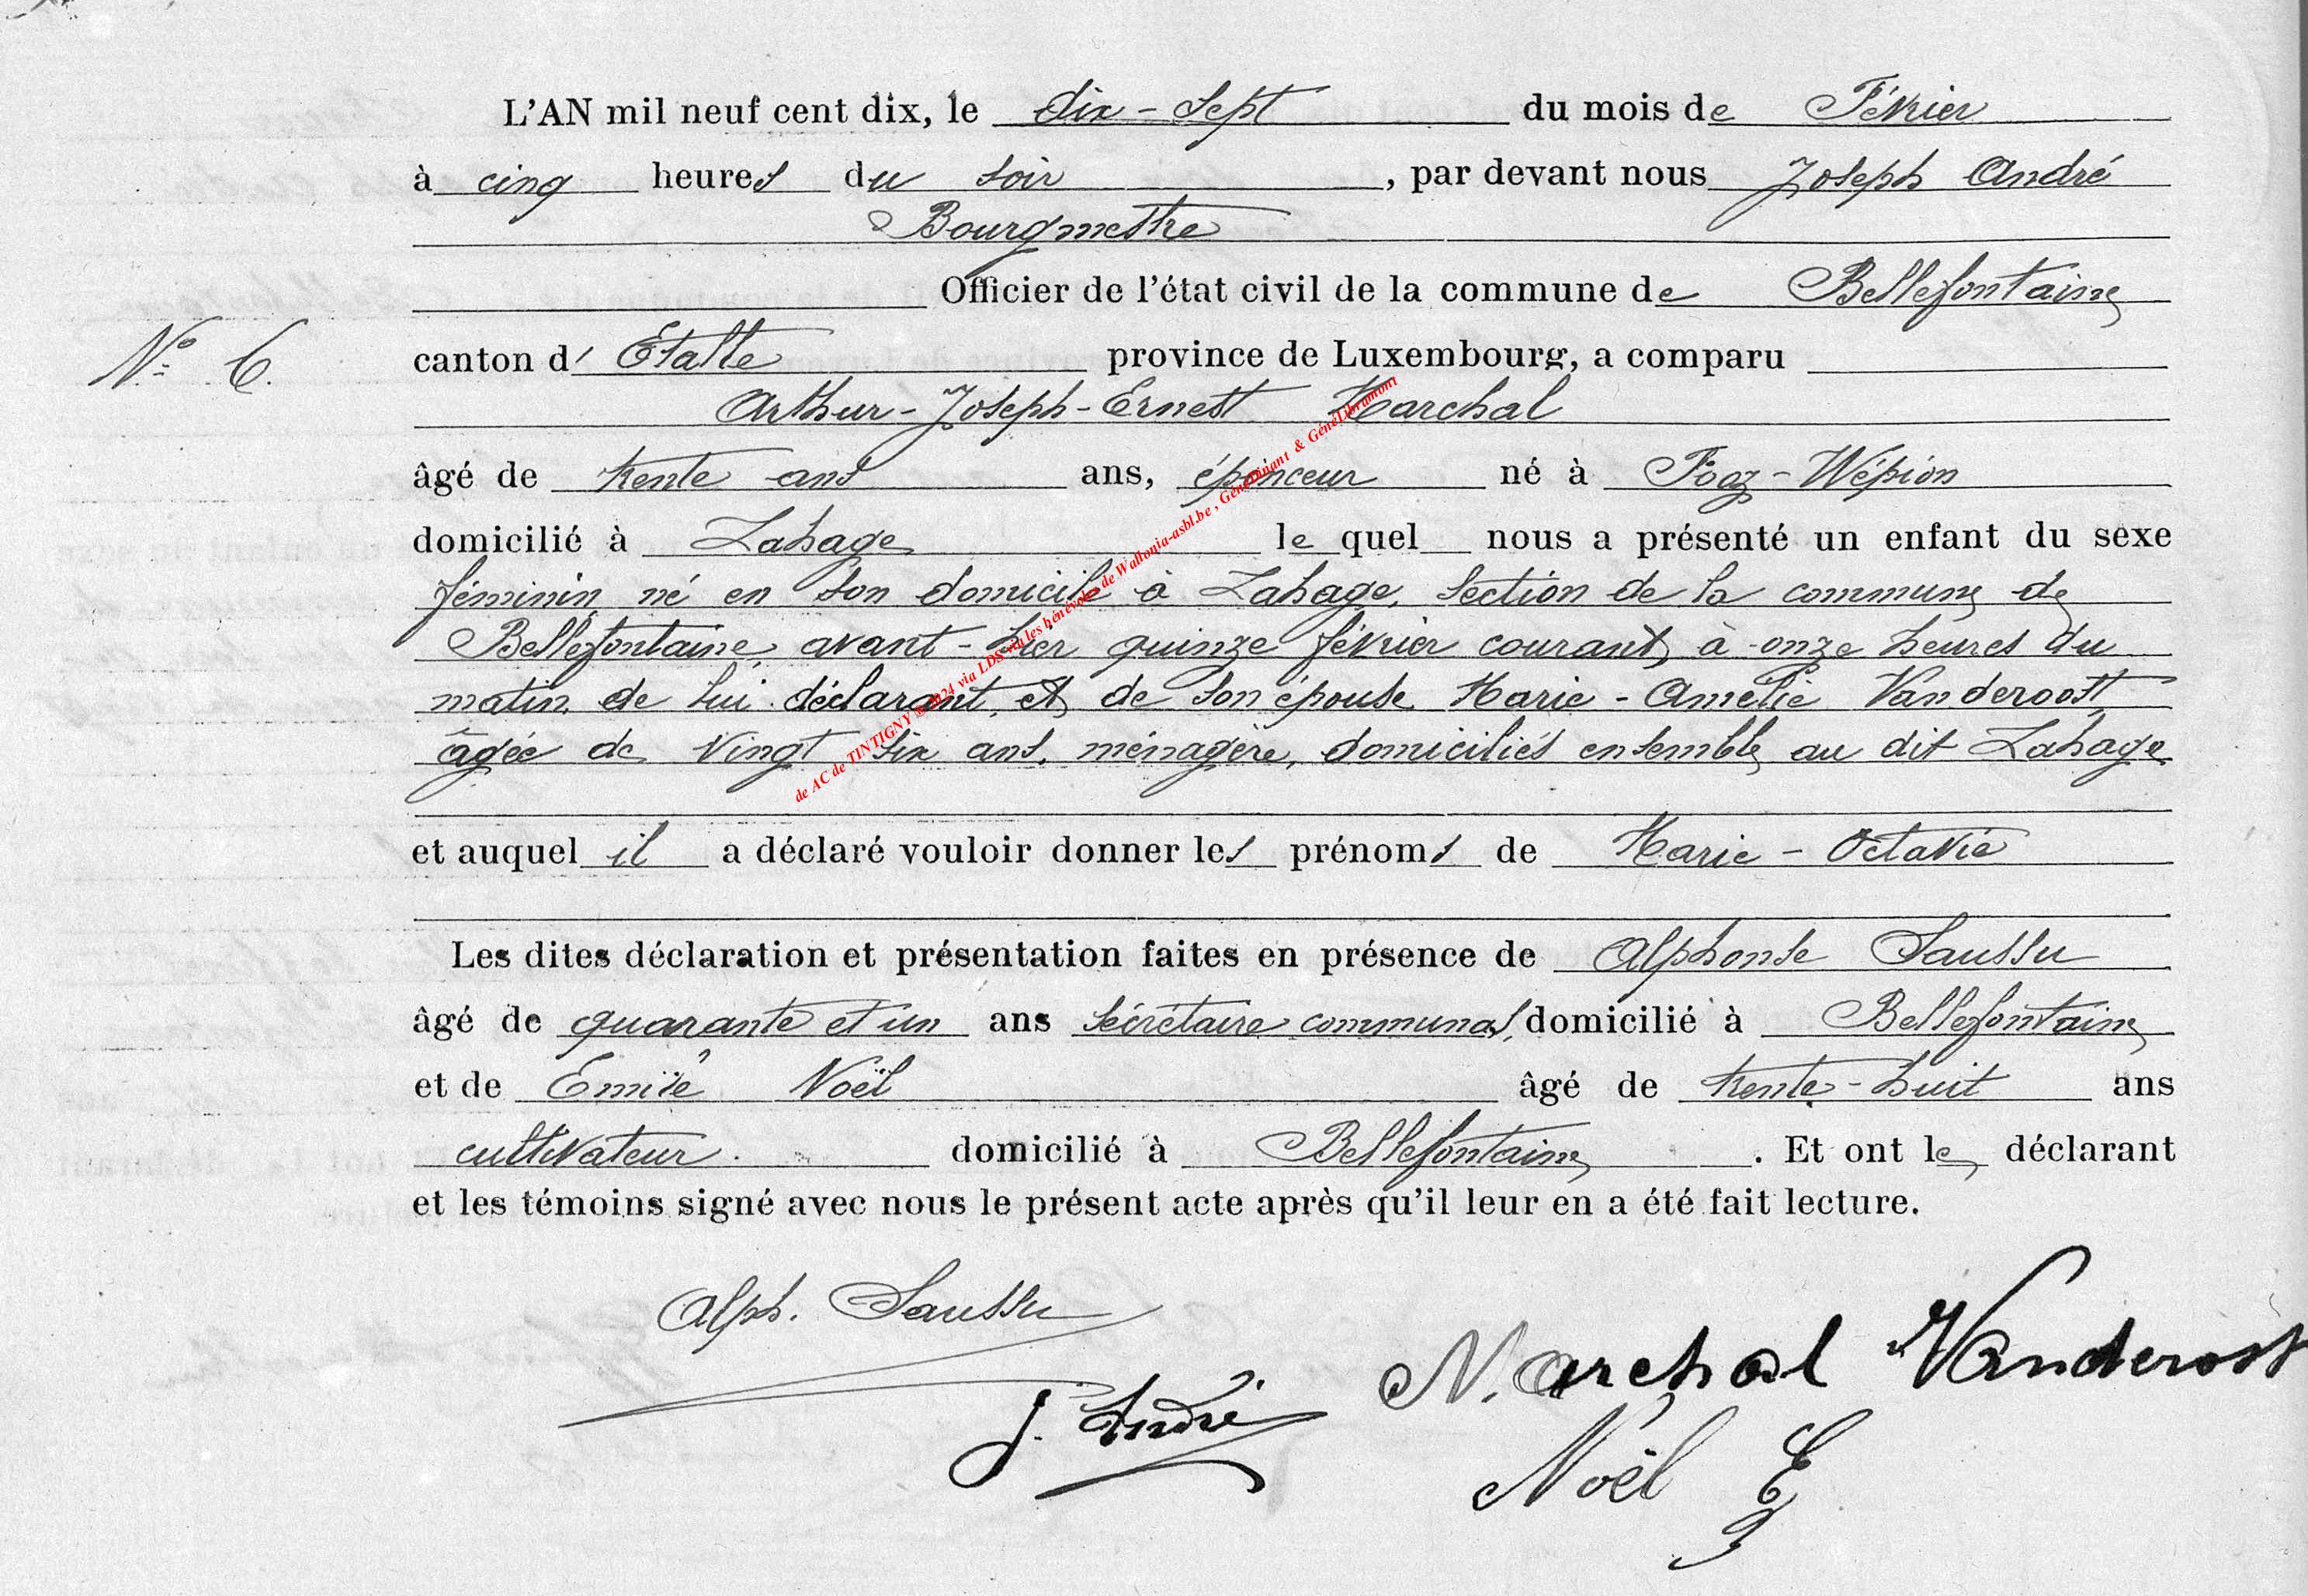 L'AN mil neuf cent dix, le dix-sept du mois de Février
à cinq heures du soir, par devant nous Joseph André
Bourgmestre
Officier de l'état civil de la commune de Bellefontaine
N° 6. canton d'Etalle province de Luxembourg, a comparu
Arthur-Joseph-Ernest Marchal
âgé de trente ans ans, épinceur né à Fooz-Wépion
domicilié à Lahage le quel nous a présenté un enfant du sexe
féminin, né en son domicile à Lahage, section de la commune de
Bellefontaine, avant-hier quinze février courant, à onze heures du
matin, de lui déclarant, et de son épouse Marie-Amélie Vanderoost,
âgée de vingt six ans, ménagère, domiciliés ensemble au dit Lahage
de AC de TINTIGNY @ 2024 via LDS via les bénévoles de Wallonia-asbl.be , GénéDinant & GénéLibramont
et auquel il a déclaré vouloir donner les prénoms de Marie-Octavie
Les dites déclaration et présentation faites en présence de Alphonse Saussu
âgé de quarante et un ans secrétaire communal, domicilié à Bellefontaine
et de Emile Noël âgé de trente-huit ans
cultivateur. domicilié à Bellefontaine. Et ont le déclarant
et les témoins signé avec nous le présent acte après qu'il leur en a été fait lecture.
Alph. Saussu
Marchal Vanderost
J. André
Noël E